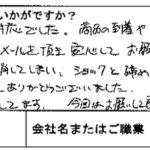 いかがですか?
応でした。商品の到着や
メールを頂き安心して お願
消してしまい、ショックと諦め
ありがとうございました。
してます。 今回はお願いして良
会社名またはご職業